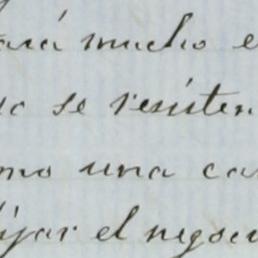 ará mucho e
o se resisten
mo una ca
ijar el negoci